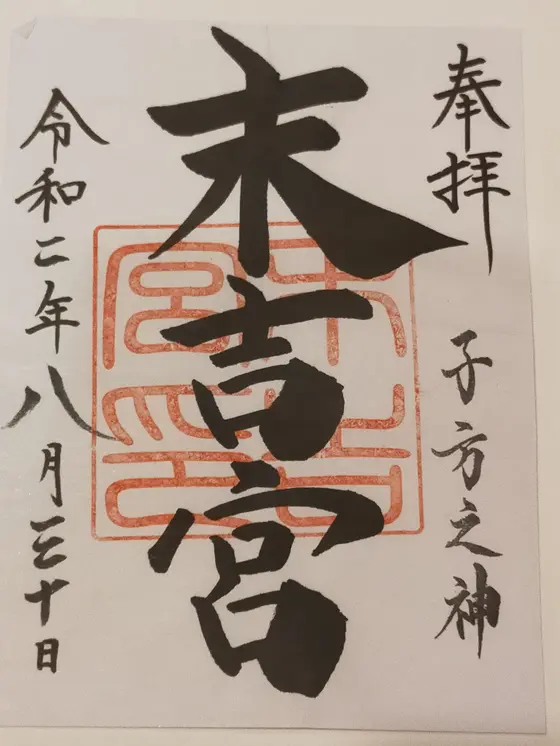 奉拝
子方之神
末吉宮
令和二年八月三十日